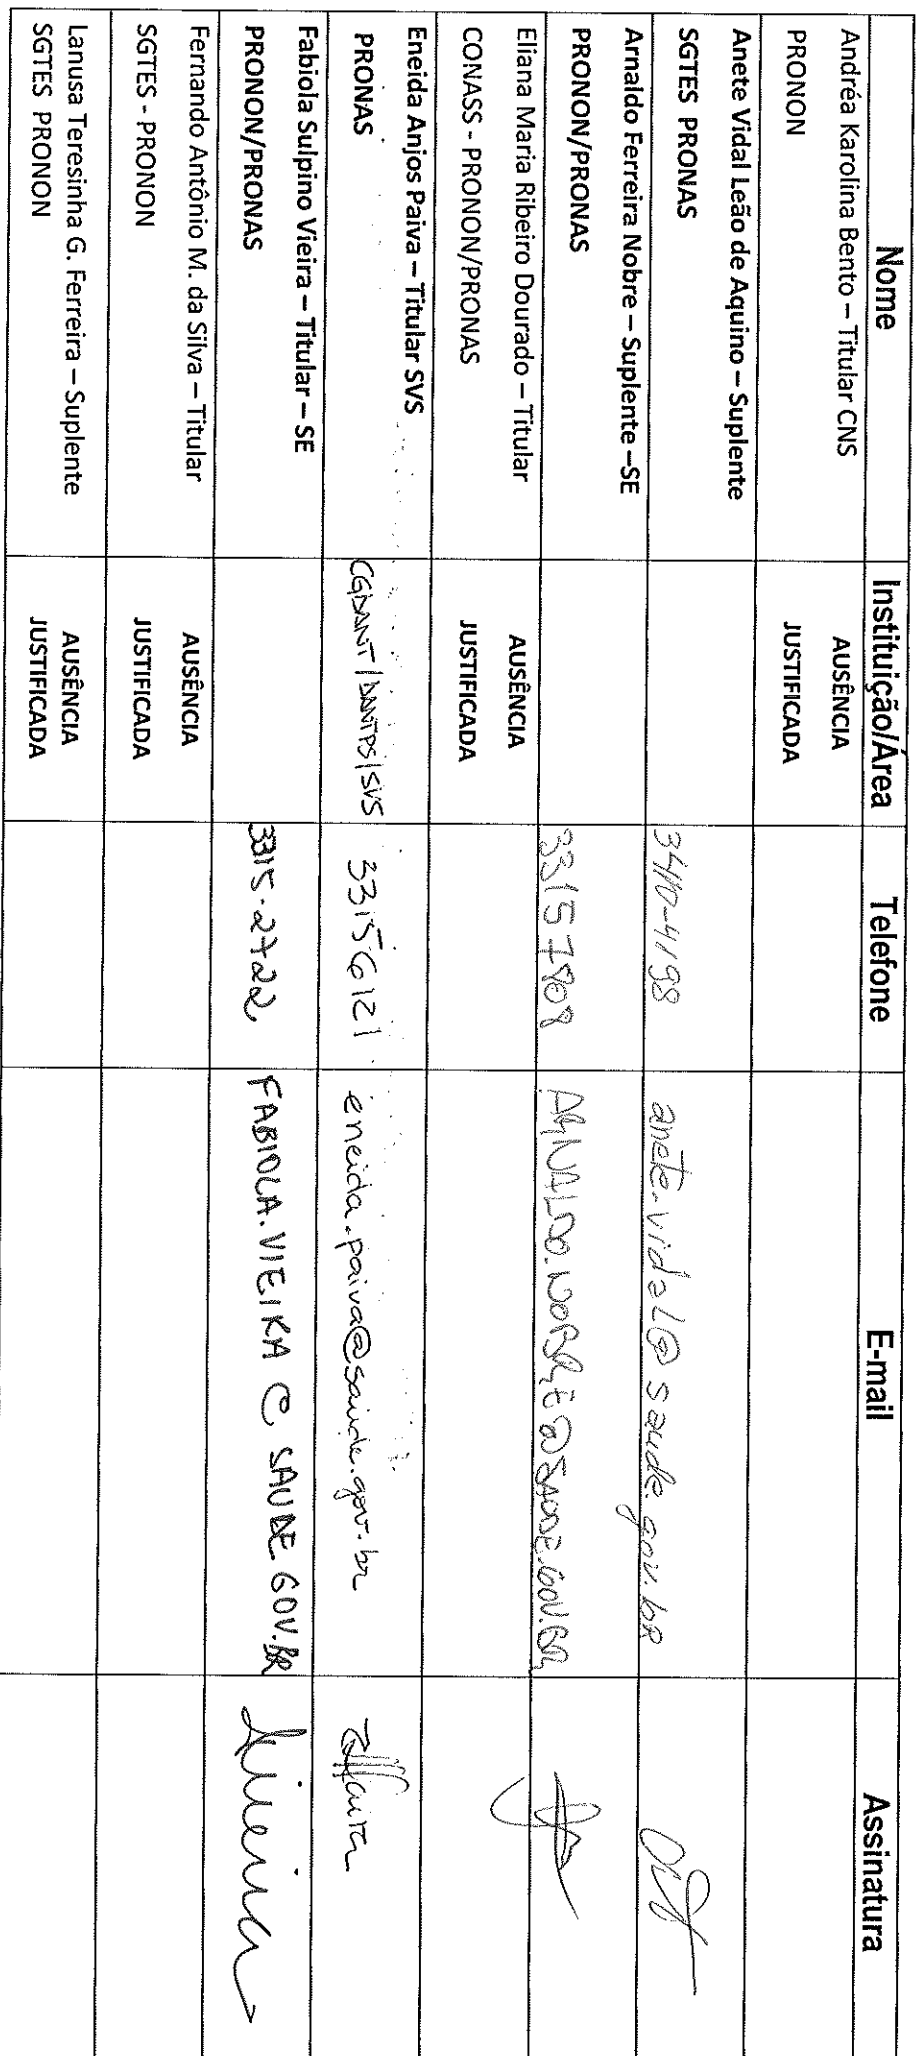 Nome Instituição/Área Telefone E-mail Assinatura
Andréa Karolina Bento – Titular CNS AUSÊNCIA
PRONON JUSTIFICADA
Anete Vidal Leão de Aquino – Suplente
SGTES PRONAS 3410-4198 anete.vidal@saude.gov.br
Arnaldo Ferreira Nobre – Suplente –SE
PRONON/PRONAS 33157808 ARNALDO.NOBRE@SAUDE.GOV.BR
Eliana Maria Ribeiro Dourado – Titular AUSÊNCIA
CONASS - PRONON/PRONAS JUSTIFICADA
Eneida Anjos Paiva – Titular SVS
PRONAS CGDANT/DANTPS/SVS 33156121 eneida.paiva@saude.gov.br
Fabiola Sulpino Vieira – Titular – SE
PRONON/PRONAS 3315-2722 FABIOLA.VIEIRA C SAUDE GOV.BR Vieira
Fernando Antônio M. da Silva – Titular AUSÊNCIA
SGTES - PRONON JUSTIFICADA
Lanusa Teresinha G. Ferreira – Suplente AUSÊNCIA
SGTES PRONON JUSTIFICADA